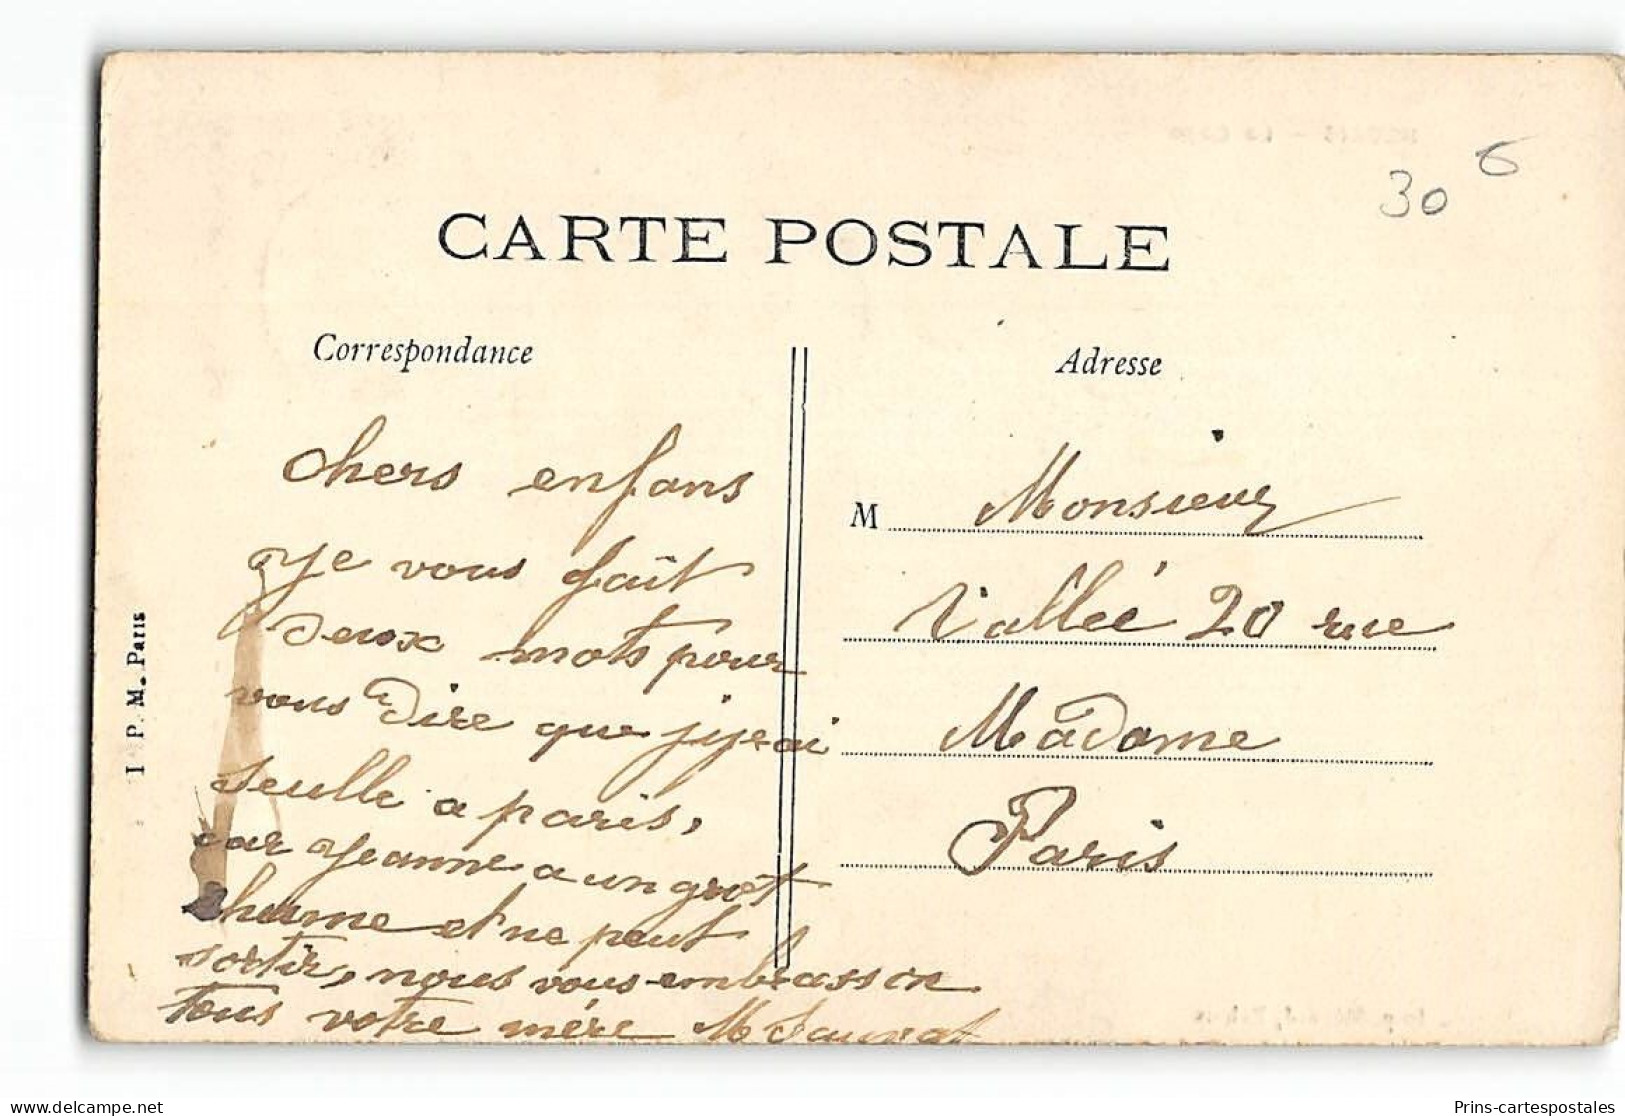 30 6
CARTE POSTALE
Correspondance
Adresse
chers enfans
Je vous fait
deux mots pour
vous dire que j'ijeai
seulle a paris,
car Jeanne a un grot
rhume et ne peut
sortir, nous vous embrasson
tous votre mère M
M Monsieur
Vallée 20 rue
Madame
Paris
I P. M. Paris
Prins-cartespostales